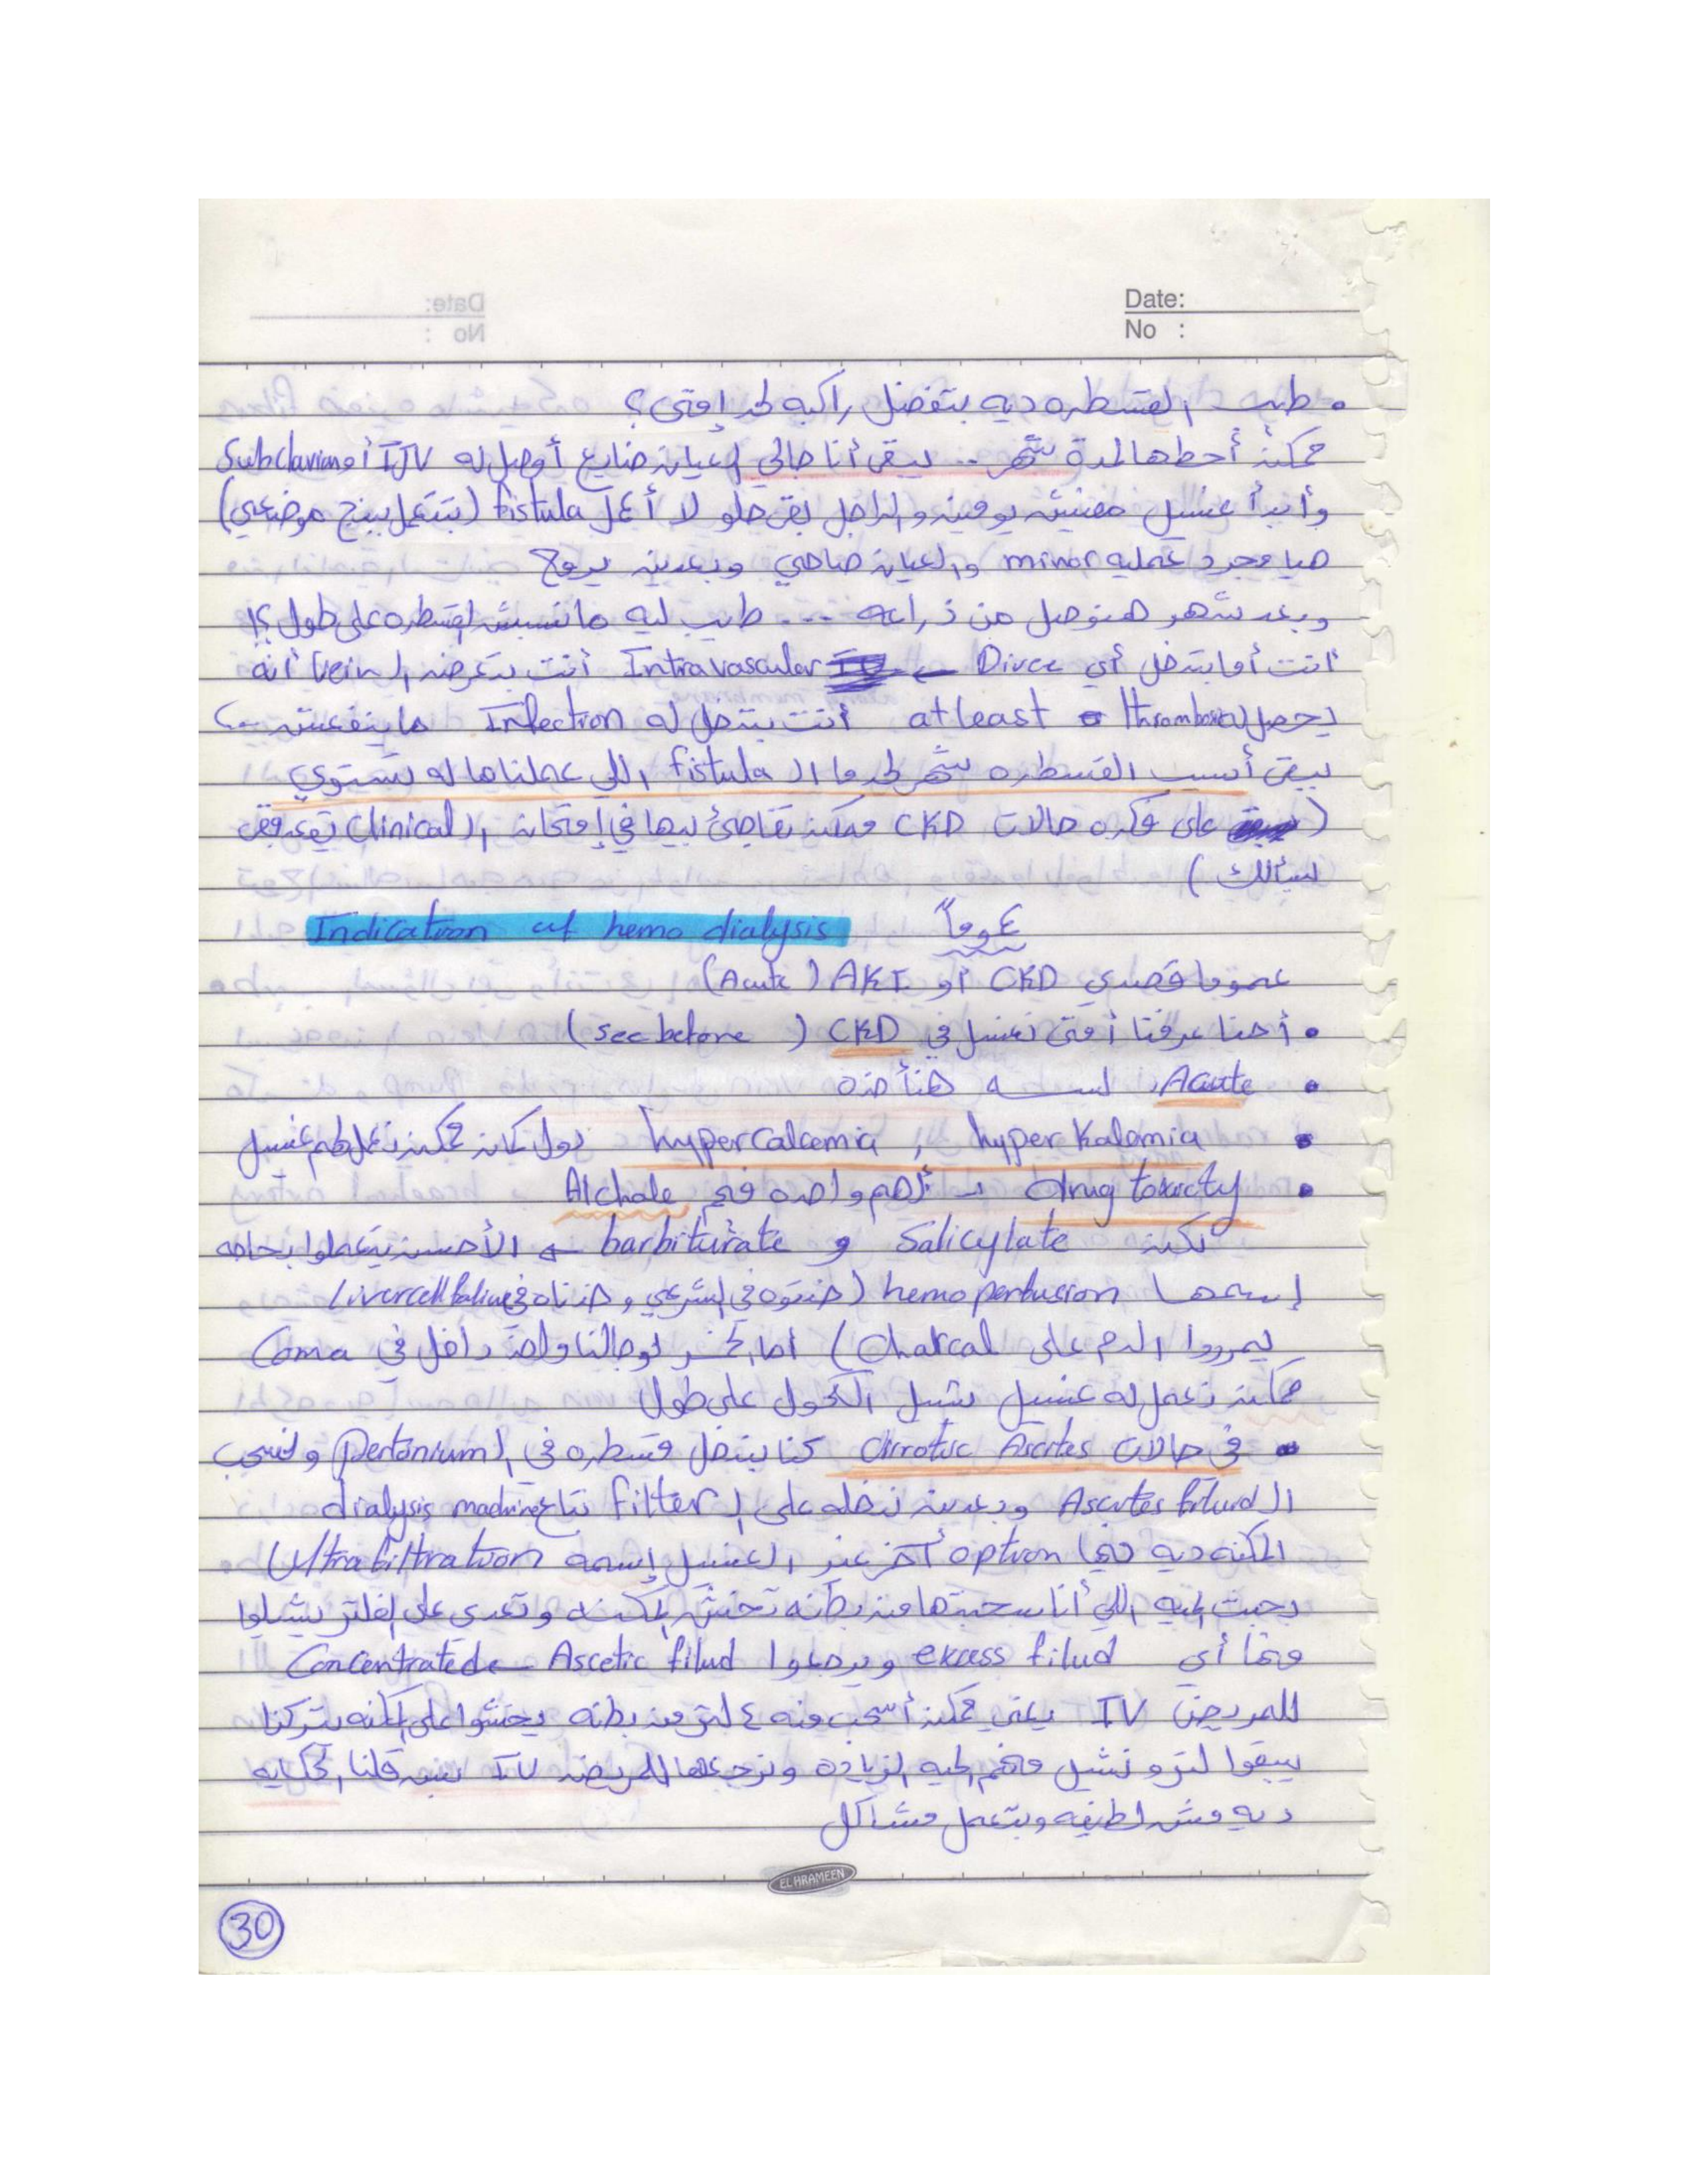 Date:
No :
• طيب القسطره ديه بتفضل راكبه لحد إمتى؟
ممكن أحطها لمدة شهر .. يبقى أنا جالي العيان ضايع أوصل له IJV أو Subclavian
وأبدأ غسيل مفيش يومين والراجل بقى حلو لا أعمل fistula (بتتعمل ببنج موضعي)
هيا مجرد عمليه minor والعيان صاحي وبعدين يروح
وبعد شهر هنوصل من ذراعه ... طيب ليه مانسبش القسطره على طول ؟!
انت أما بتدخل أي Divce ← Intravascular أنت بتعرض ال Vein أنه
يحصل له thrombosis at least أنت بتدخل له Infection ماينفعش
يبقى أسيب القسطره شهر لحد ما ال fistula اللي عملناها له تستوي
( على فكره حالات CKD ممكن تفاجئ بيها في إمتحان ال Clinical
يسألك )
عموماً Indication of hemo dialysis
عموما قصدي CKD أو AKI (Acute)
• أحنا عرفنا أمتى نغسل في CKD (see before)
• Acute لسه هنأخده
• hyper Kalemia , hypercalcemia دول كان ممكن نعمل لهم غسيل
• drug toxicty → أهم واحده فيهم Alchole
لكن Salicylate و barbiturate ← الأحسن يتعملوا بحاجه
إسمها hemo perfusion (خدتوه في الشرعي و خدناه في Liver cell failure
يمرروا الدم على Charcal ) أما لو جالنا واحد داخل في Coma
ممكن نعمل له غسيل نشيل الكحول على طول
• في حالات Cirrotic Ascites كنا بندخل قسطره في ال Peritonium ونسحب
ال Ascites fliud وبعدين ندخله على ال filter بتاع dialysis machine
المكنه ديه فيها option آخر غير الغسيل إسمه Ultrafiltration
جبت الميه اللي أنا سحبتها من بطنه تخش المكنه وتعدي على الفلتر يشيلوا
منها أي excess filud ويرجعوا Ascetic filud ← Concentrated
للمريض IV يعني ممكن أسحب منه ٤ لتر من بطنه يخشوا على المكنه يتركزا
يبقوا لتر ونشيل منهم الميه الزياده ونرجعها للمريض IV بس قلنا الحكايه
ديه مش لطيفه وبتعمل مشاكل
EL HRAMEEN
30